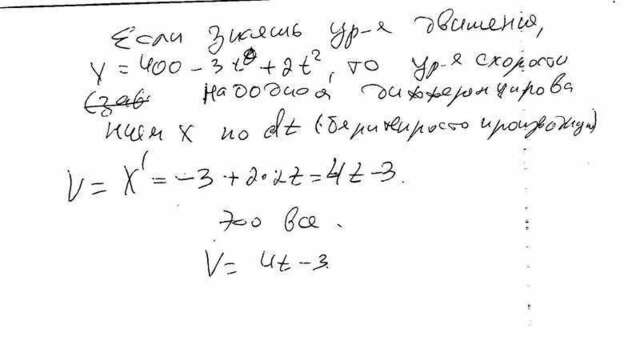 Если знаешь ур-я движения,
x = 400 - 3t + 2t², то ур-я скорости
находися дифференцирова
нием x по dt (бери просто производную)
V = X' = -3 + 2·2t = 4t - 3.
это все.
V = 4t - 3